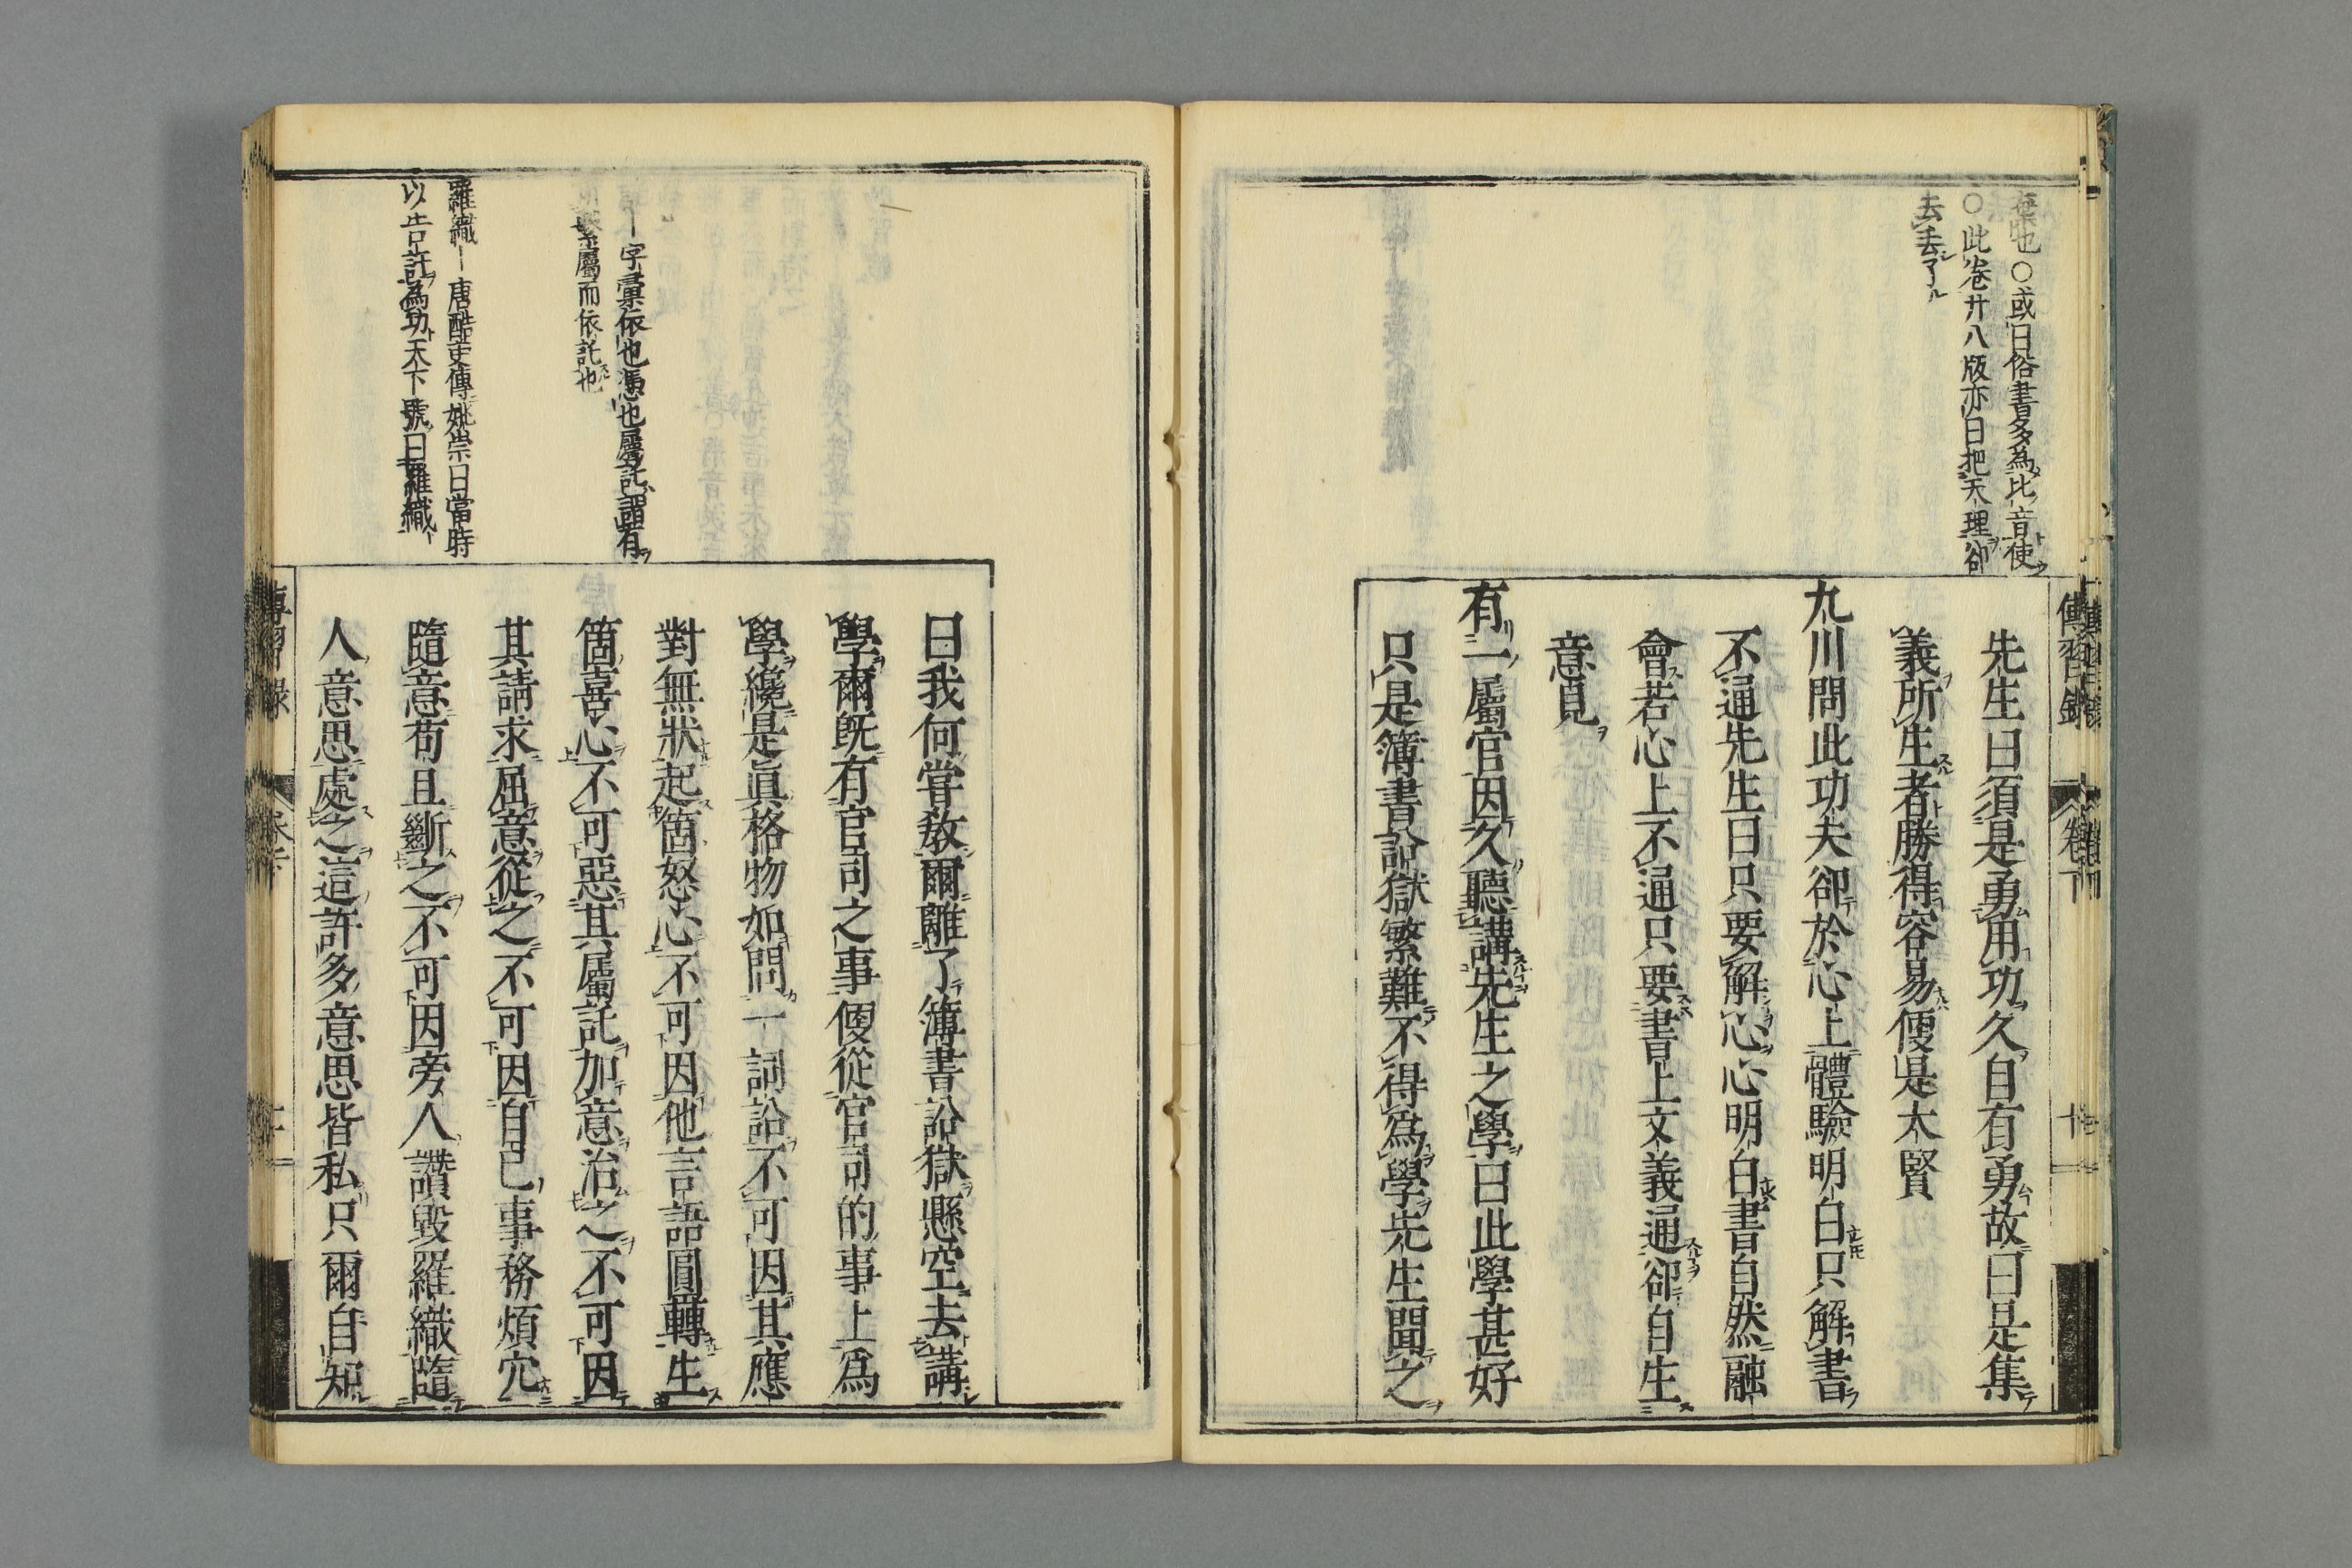 也○或曰俗書多為比音使
○此卷廿八版亦曰把天理卻
去丢了
傳習錄
卷下
十
先生曰須是勇用功久自有勇故曰是集
義所生者勝得容易便是大賢
九川問此功夫卻於心上體驗明白只解書
不通先生曰只要解心心明白書自然融
會若心上不通只要書上文義通卻自生
意見
有一屬官因久聽講先生之學曰此學甚好
只是簿書訟獄繁難不得爲學先生聞之
字彙依也憑也屬託謂有
繫屬而依託也
羅織唐酷吏傳姚崇曰當時
以告訐為功天下號曰羅織
曰我何嘗教爾離了簿書訟獄懸空去講
學爾旣有官司之事便從官司的事上爲
學纔是眞格物如問一詞訟不可因其應
對無狀起箇怒心不可因他言語圓轉生
箇喜心不可惡其屬託加意治之不可因
其請求屈意從之不可因自己事務煩冗
隨意苟且斷之不可因旁人譖毀羅織隨
人意思處之這許多意思皆私只爾自知
傳習錄